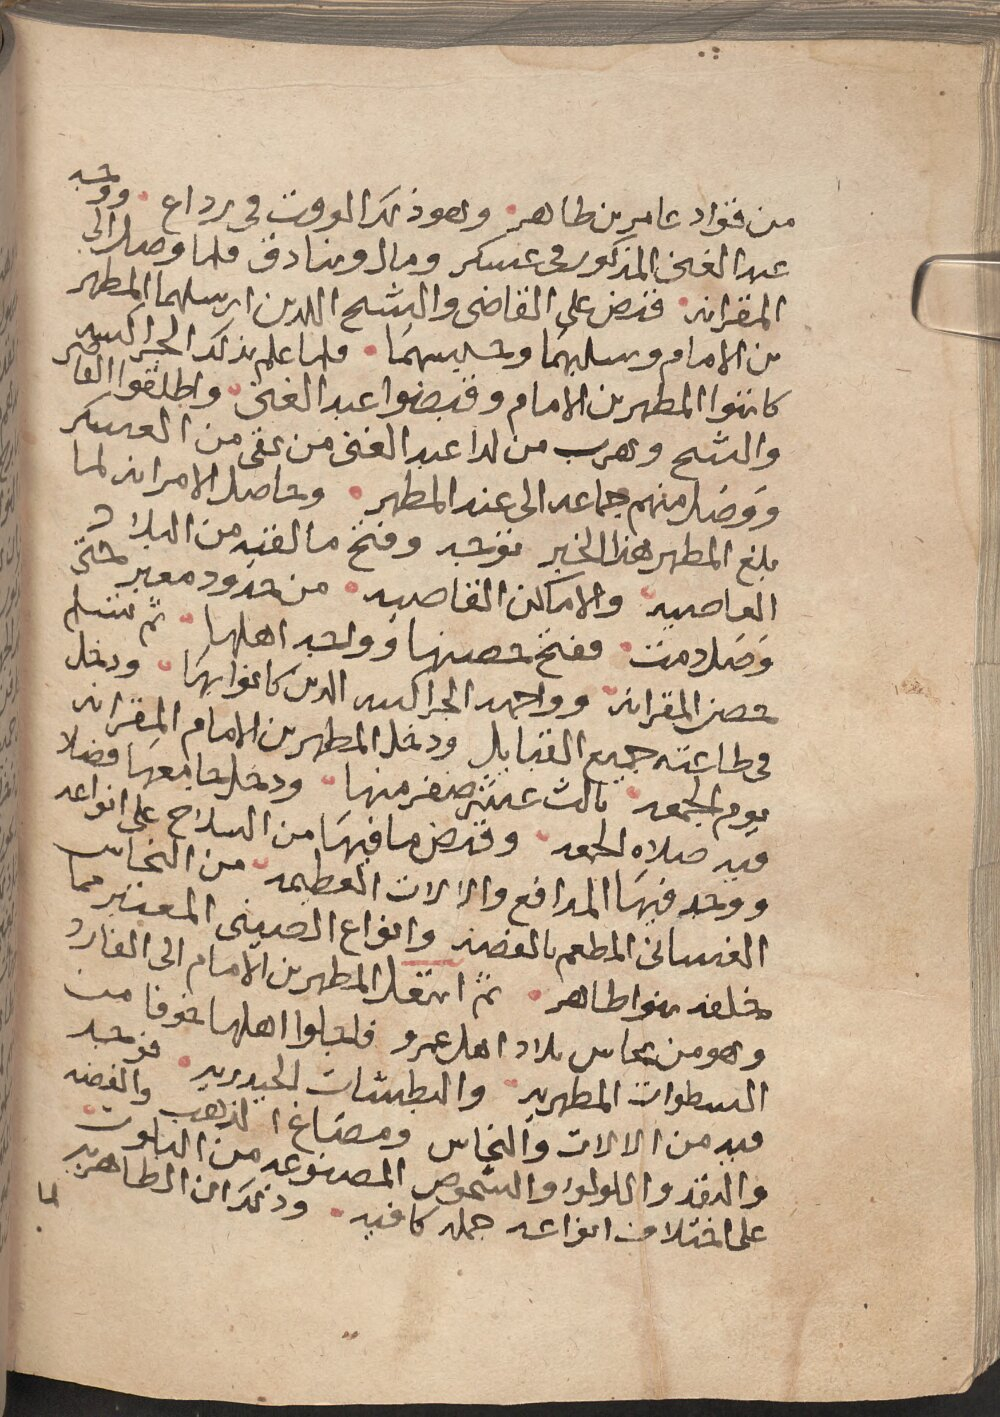 من قواد عامر بن طاهر وهو ذلك الوقت في رداع ووجه
عبد الغني المذكور في عسكر ومال وبنادق فلما وصل الى
المقرانه قبض على القاضي والشيخ الذين ارسلهما المطهر
بن الامام وسلبهما وحبسهما فلما علم بذلك الجراكسه
كاتبوا المطهر بن الامام وقبضوا عبد الغني واطلقوا القاضي
والشيخ وهرب من لدا عبد الغني من بقي من العسكر
ووصل منهم جماعه الى عند المطهر وحاصل الامر انه لما
بلغ المطهر هذا الخبر توجه وفتح ما لقيه من البلاد
العاصيه والاماكن القاصيه من حدود معبر حتى
وصل دمت ففتح حصنها وواجه اهلها ثم تسلم
حصن المقرانه وواجهه الجراكسه الذين كانوا بها ودخل
في طاعته جميع القبايل ودخل المطهر بن الامام المقرانه
يوم الجمعه ثالث عشر صفر منها ودخل جامعها فصلا
فيه صلاه الجمعه وقبض ما فيها من السلاح على انواعه
ووجد فيها المدافع والالات العظيمه من النحاس
الغساني المطعم بالفضه وانواع الصيني المعتبر مما
خلفه بنوا طاهر ثم انتقل المطهر بن الامام الى
وهو من محاسن بلاد اهل عمرو فاجلوا اهلها خوفا من
السطوات المطهريه والبطشات الحيدريه فوجد
فيه من الالات والنحاس ومصاغ الذهب والفضه
والنقد واللولو والشخوص المصنوعه من الياقوت
على اختلاف انواعه جمله كافيه وذلك ان الطاهريه
لما